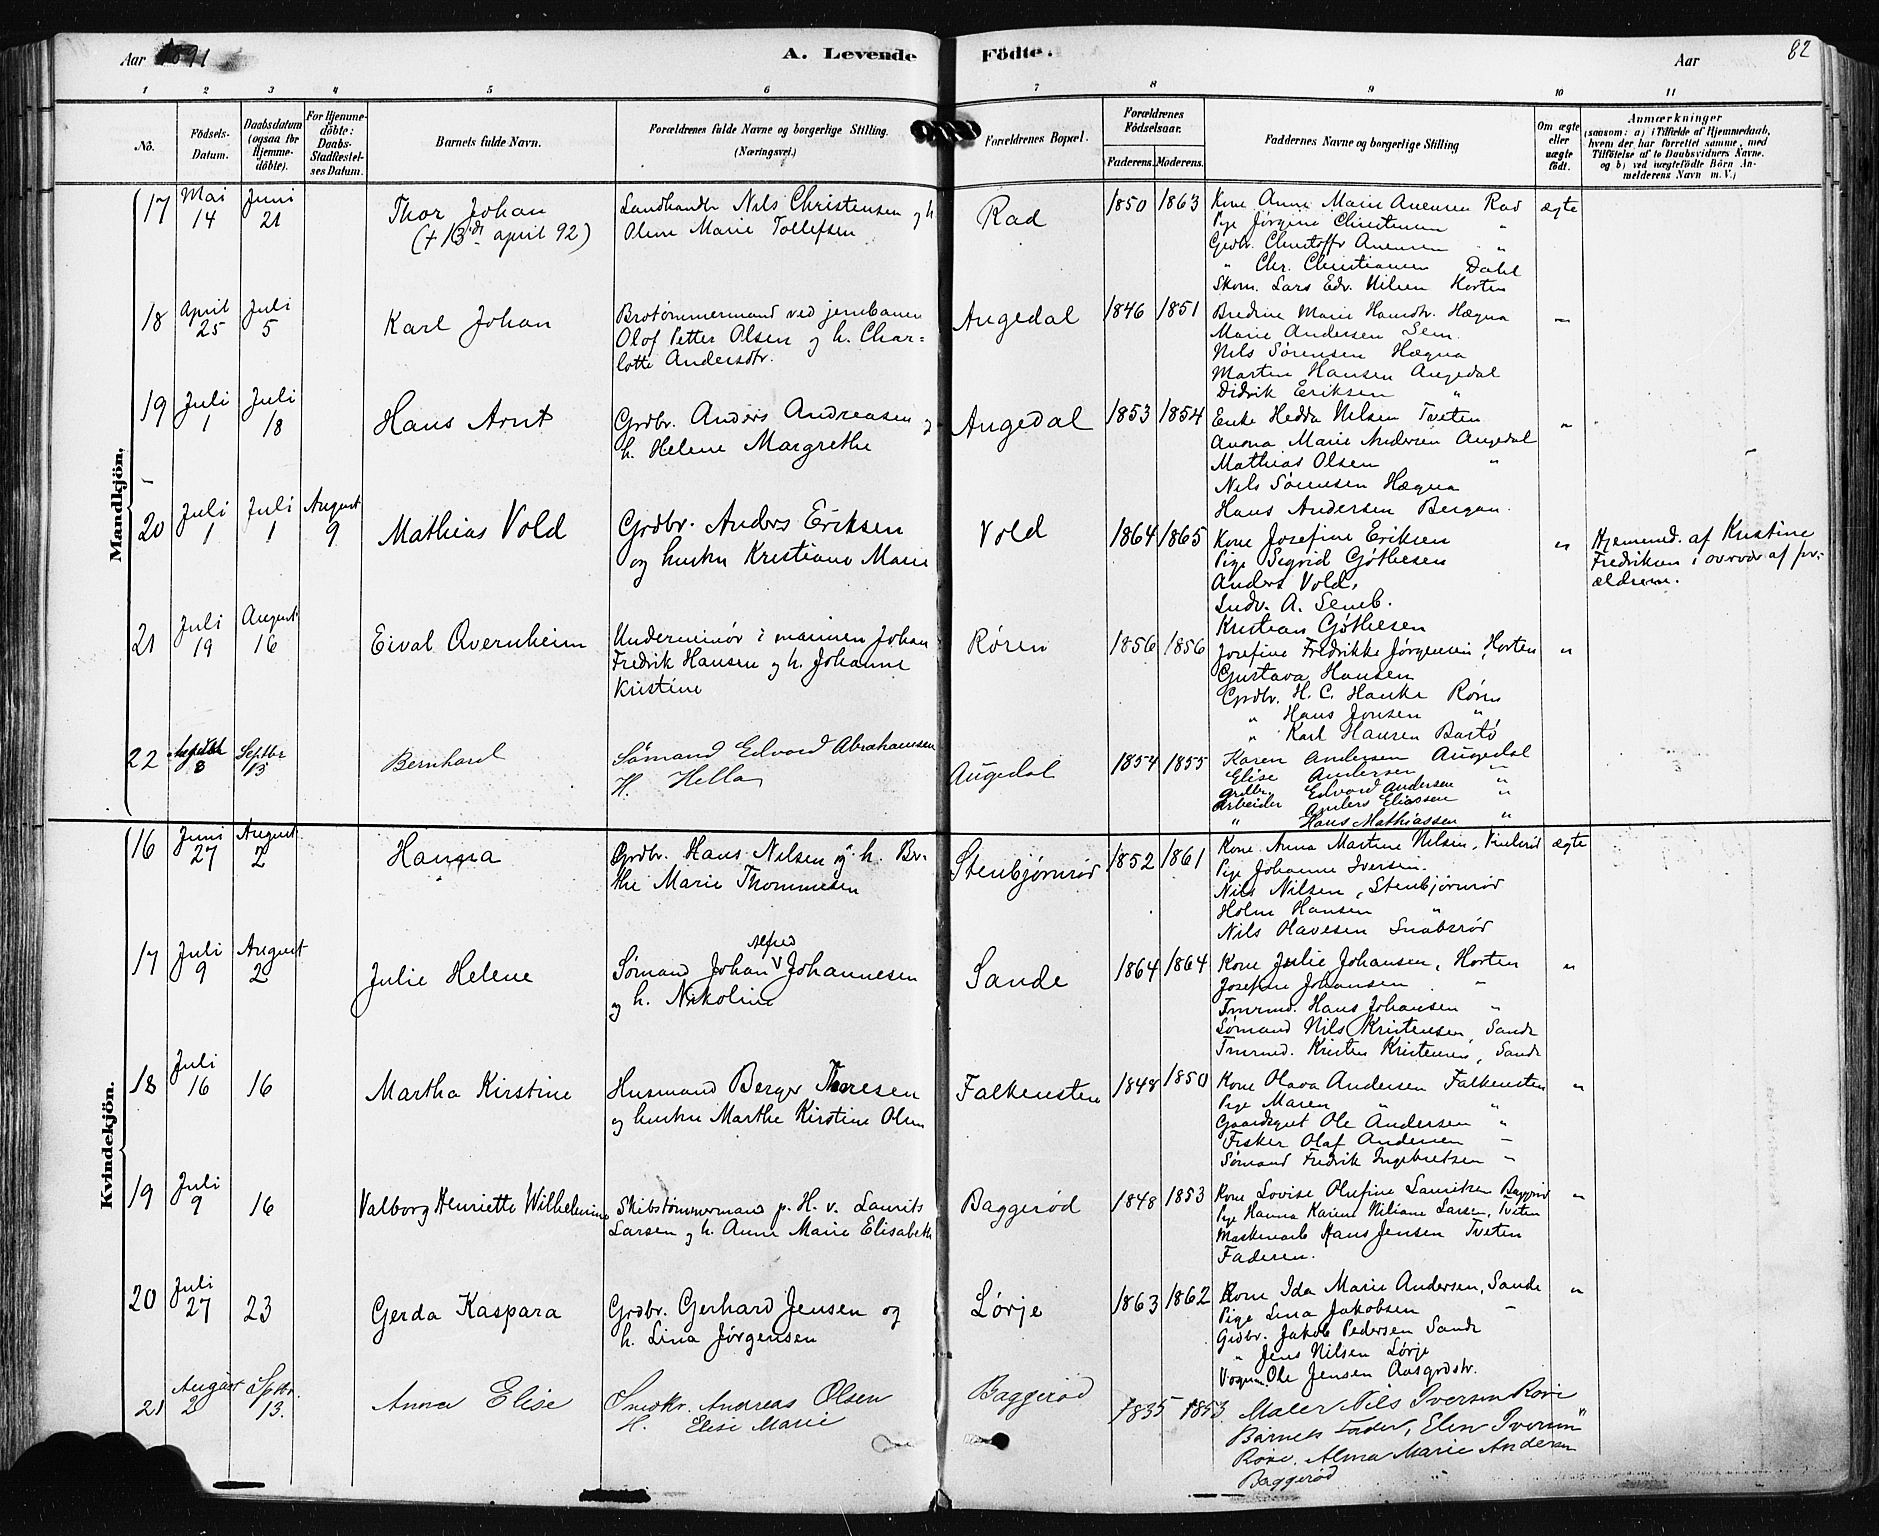 Aar 1891
A. Levende Födte.
Aar
82
1 2 3 4 5 6 7 8 9 10 11
Nô.
Födsels-Datum.
Daabsdatum (ogsaa for Hjemme-döbte).
For Hjemme-döbte: Daabs-Stadfæstel-ses Datum.
Barnets fulde Navn.
Forældrenes fulde Navne og borgerlige Stilling.
(Næringsvei.)
Forældrenes Bopæl.
Forældrenes Födselsaar.
Faderens. Moderens.
Faddernes Navne og borgerlige Stilling
Om ægte eller uægte födt.
Anmærkninger
(saasom: a) i Tilfælde af Hjemmedaab,
hvem der har forrettet samme, med
Tilföielse af to Daabsvidners Navne.
og b) ved uægtefödte Börn An-
melderens Navn m. V.)
Mandkjön.
17 Mai 14 Juni 21 Thor Johan (+ 13de april 92)
Landhandl. Nils Christensen og h.
Oline Marie Tollefsen
Rad 1850 1863
Kone Anne Marie Anensen Rad ægte
Pige Jørgine Christensen "
Grdbr. Christoffr Anensen "
" Chr. Christiansen Dahl
Skom. Lars Edv. Nilsen Horten
18 April 25 Juli 5 Karl Johan
Brotømmermand ved jernbanen
Olof Petter Olsen og h. Char=
lotte Andersdtr.
Augedal 1846 1851
Bredine Marie Hansdtr. Hægna "
Marie Andersen Sem
Nils Sørensen Hægna
Martin Hansen Augedal
Didrik Eriksen "
19 Juli 1 Juli 18 Hans Arnt
Grdbr. Anders Andreasen og
h. Helene Margrethe
Augedal 1853 1854
Enke Hedda Nilsen Tveten "
Anna Marie Andersen Augedal
Mathias Olsen "
Nils Sørensen Hægna
Hans Andersen Bergan.
20 Juli 1 Juli 1 August 9 Mathias Vold
Grdbr. Anders Eriksen
og hustru Kristiane Marie
Vold 1864 1865
Kone Josefine Eriksen "
Pige Sigrid Gøthesen
Anders Vold,
Ludv. A. Semb.
Kristian Gøthesen
Hjemmed. af Kristine
Fredriksen i overvær af for-
ældrene.
21 Juli 19 August 16 Eival Avernheim
Underminør i marinen Johan
Fredrik Hansen og h. Johanne
Kristine
Røren 1856 1856
Josefine Fredrikke Jørgensen, Horten "
Gustava Hansen
Grdbr. H. C. Hanke Røren
" Hans Jonsen "
" Karl Hansen Bastø
22 8 Septbr 13 Bernhard
Sømand Edvard Abrahamsen
H. Hella
Augedal 1854 1855
Karen Andersen Augedal
Elise Andersen "
Grdbr. Edvard Andersen "
Arbeider Anders Eliassen "
" Hans Mathiassen "
Kvindekjön.
16 Juni 27 August 2 Hanna
Grdbr. Hans Nilsen og h. Ber-
the Marie Thommesen
Stenbjørnrød 1852 1861
Kone Anna Martine Nilsen, ægte
Pige Johanne Iversen.
Nils Nilsen, Stenbjørnrød
Holm Hansen "
Nils Olavesen Snabsrød
17 Juli 9 August 2 Julie Helene
Sømand Johan Alfred Johannesen
og h. Nikoline
Sande 1864 1864
Kone Julie Johansen, Horten "
Josefine Johansen "
Tmrmd. Hans Johansen "
Sømand Nils Kristensen, Sande
Tmrmd. Kristen Kristensen, Sande
18 Juli 16 16 Martha Kirstine
Husmand Berger Thoresen
og hustru Marthe Kirstine Olsen
Falkensten 1848 1850
Kone Olava Andersen Falkensten "
Pige Maren " "
Gaardeget Ole Andersen "
Fisker Olaf Andersen "
Sømand Fredrik Ingebretsen "
19 Juli 9 16 Valborg Henriette Wilhelmine
Skibstømmermand p. H. v. Laurits
Larsen og h. Anne Marie Elisabeth
Baggerød 1848 1853
Kone Lovise Olufine Lauritzen Baggerød "
Pige Hanna Karine Niliane Larsen, Tveten
Maskinarb Hans Jensen Tveten
Faderen.
20 Juli 27 23 Gerda Kaspara
Grdbr. Gerhard Jensen og
h. Lina Jørgensen
Lørje 1863 1862
Kone Ida Marie Andersen, Sande "
Pige Lina Jakobsen "
Grdbr. Jakob Pedersen Sande
" Jens Nilsen Lørje
Vognm. Ole Jensen Aasgrdstr.
21 August 2 Septbr. 13. Anna Elise
Snedkr. Andreas Olsen
H. Elise Marie
Baggerød 1835 1853
Maler Nils Iversen Røre
Barnets Fader, Elen Iversen "
Røre. Alma Marie Andersen
Baggerød